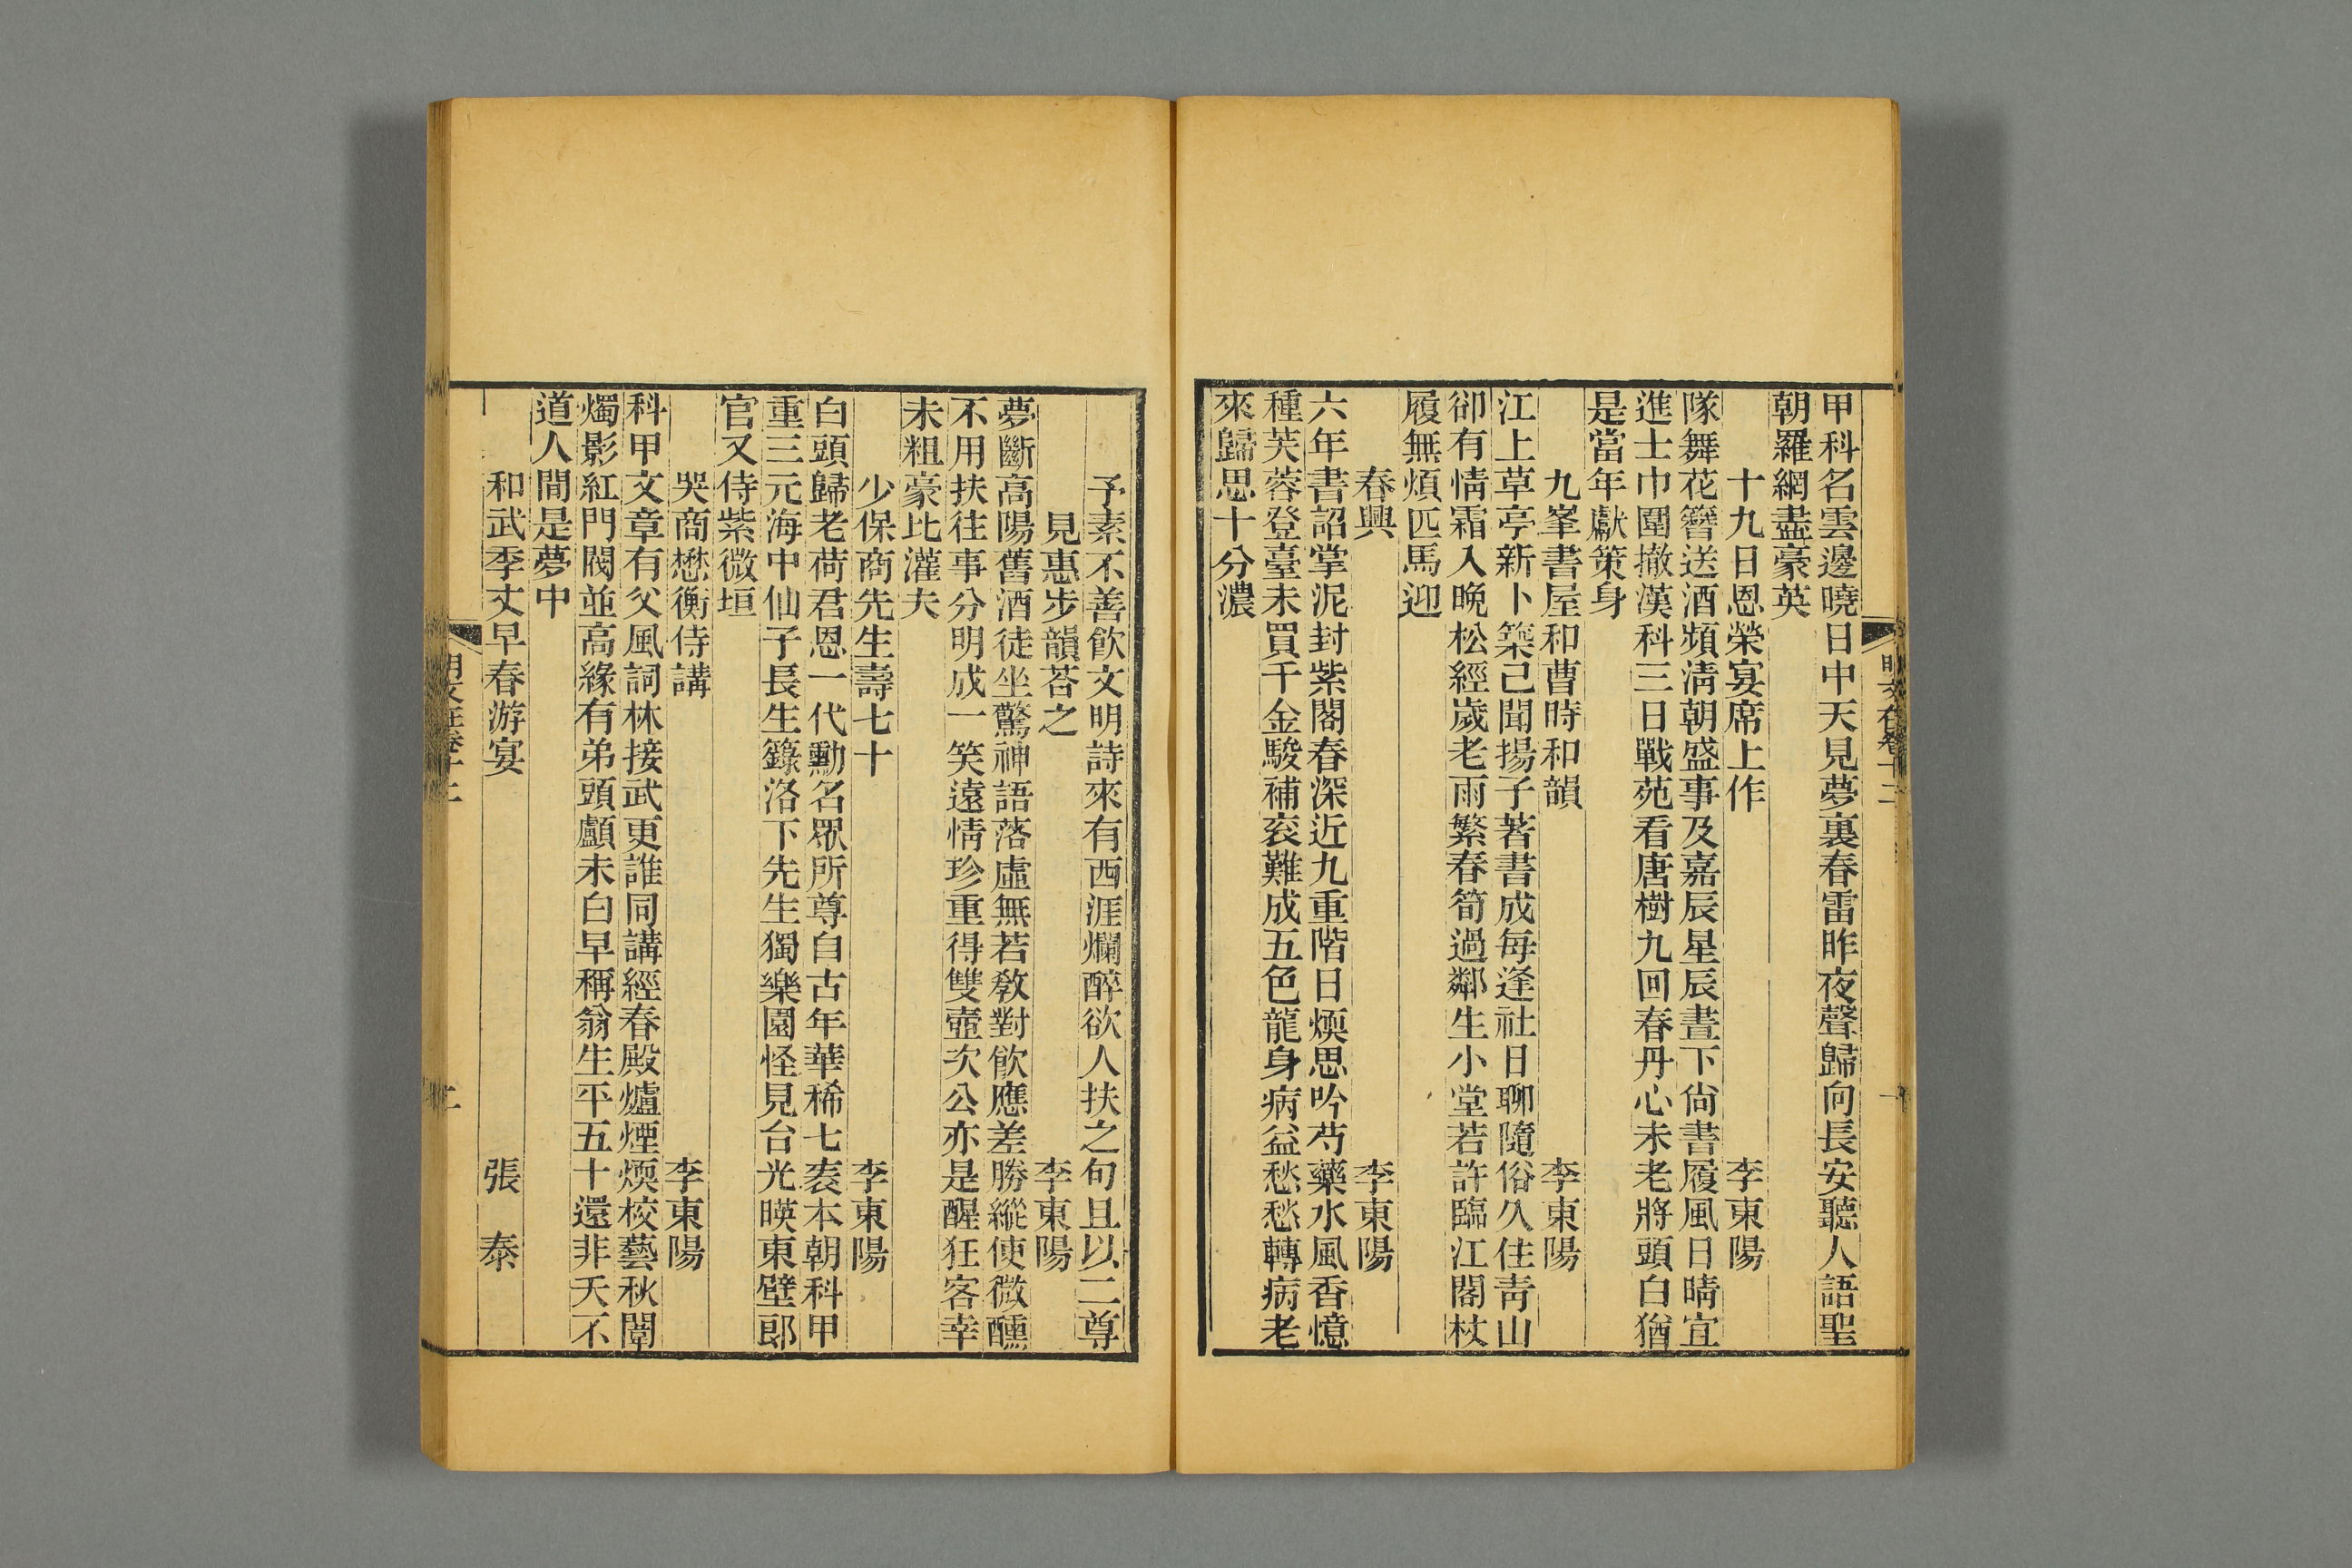 甲科名雲邊曉日中天見夢裏春雷昨夜聲歸向長安聽人語聖
朝羅網盡豪英
十九日恩榮宴席上作 李東陽
隊舞花簪送酒頻清朝盛事及嘉辰星辰晝下尚書履風日晴宜
進士巾圍撤漢科三日戰苑看唐樹九回春丹心未老將頭白猶
是當年獻策身
九峯書屋和曹時和韻 李東陽
江上草亭新卜築已聞揚子著書成每逢社日聊隨俗久住青山
卻有情霜入晚松經歲老雨繁春筍過鄰生小堂若許臨江閣杖
履無煩匹馬迎
春興 李東陽
六年書詔掌泥封紫閣春深近九重階日煗思吟芍藥水風香憶
種芙蓉登臺未買千金駿補衮難成五色龍身病益愁愁轉病老
來歸思十分濃
予素不善飲文明詩來有西涯爛醉欲人扶之句且以二尊
見惠步韻荅之 李東陽
夢斷高陽舊酒徒坐驚神語落虛無若教對飲應差勝縱使微醺
不用扶往事分明成一笑遠情珍重得雙壺次公亦是醒狂客幸
未粗豪比灌夫
少保商先生壽七十 李東陽
白頭歸老荷君恩一代勳名眾所尊自古年華稀七袠本朝科甲
重三元海中仙子長生籙洛下先生獨樂園怪見台光暎東壁郎
官又侍紫微垣
哭商懋衡侍講 李東陽
科甲文章有父風詞林接武更誰同講經春殿爐煙煗校藝秋闈
燭影紅門閥並高緣有弟頭顱未白早稱翁生平五十還非夭不
道人間是夢中
和武季丈早春游宴 張泰
明文在卷十二
一
二